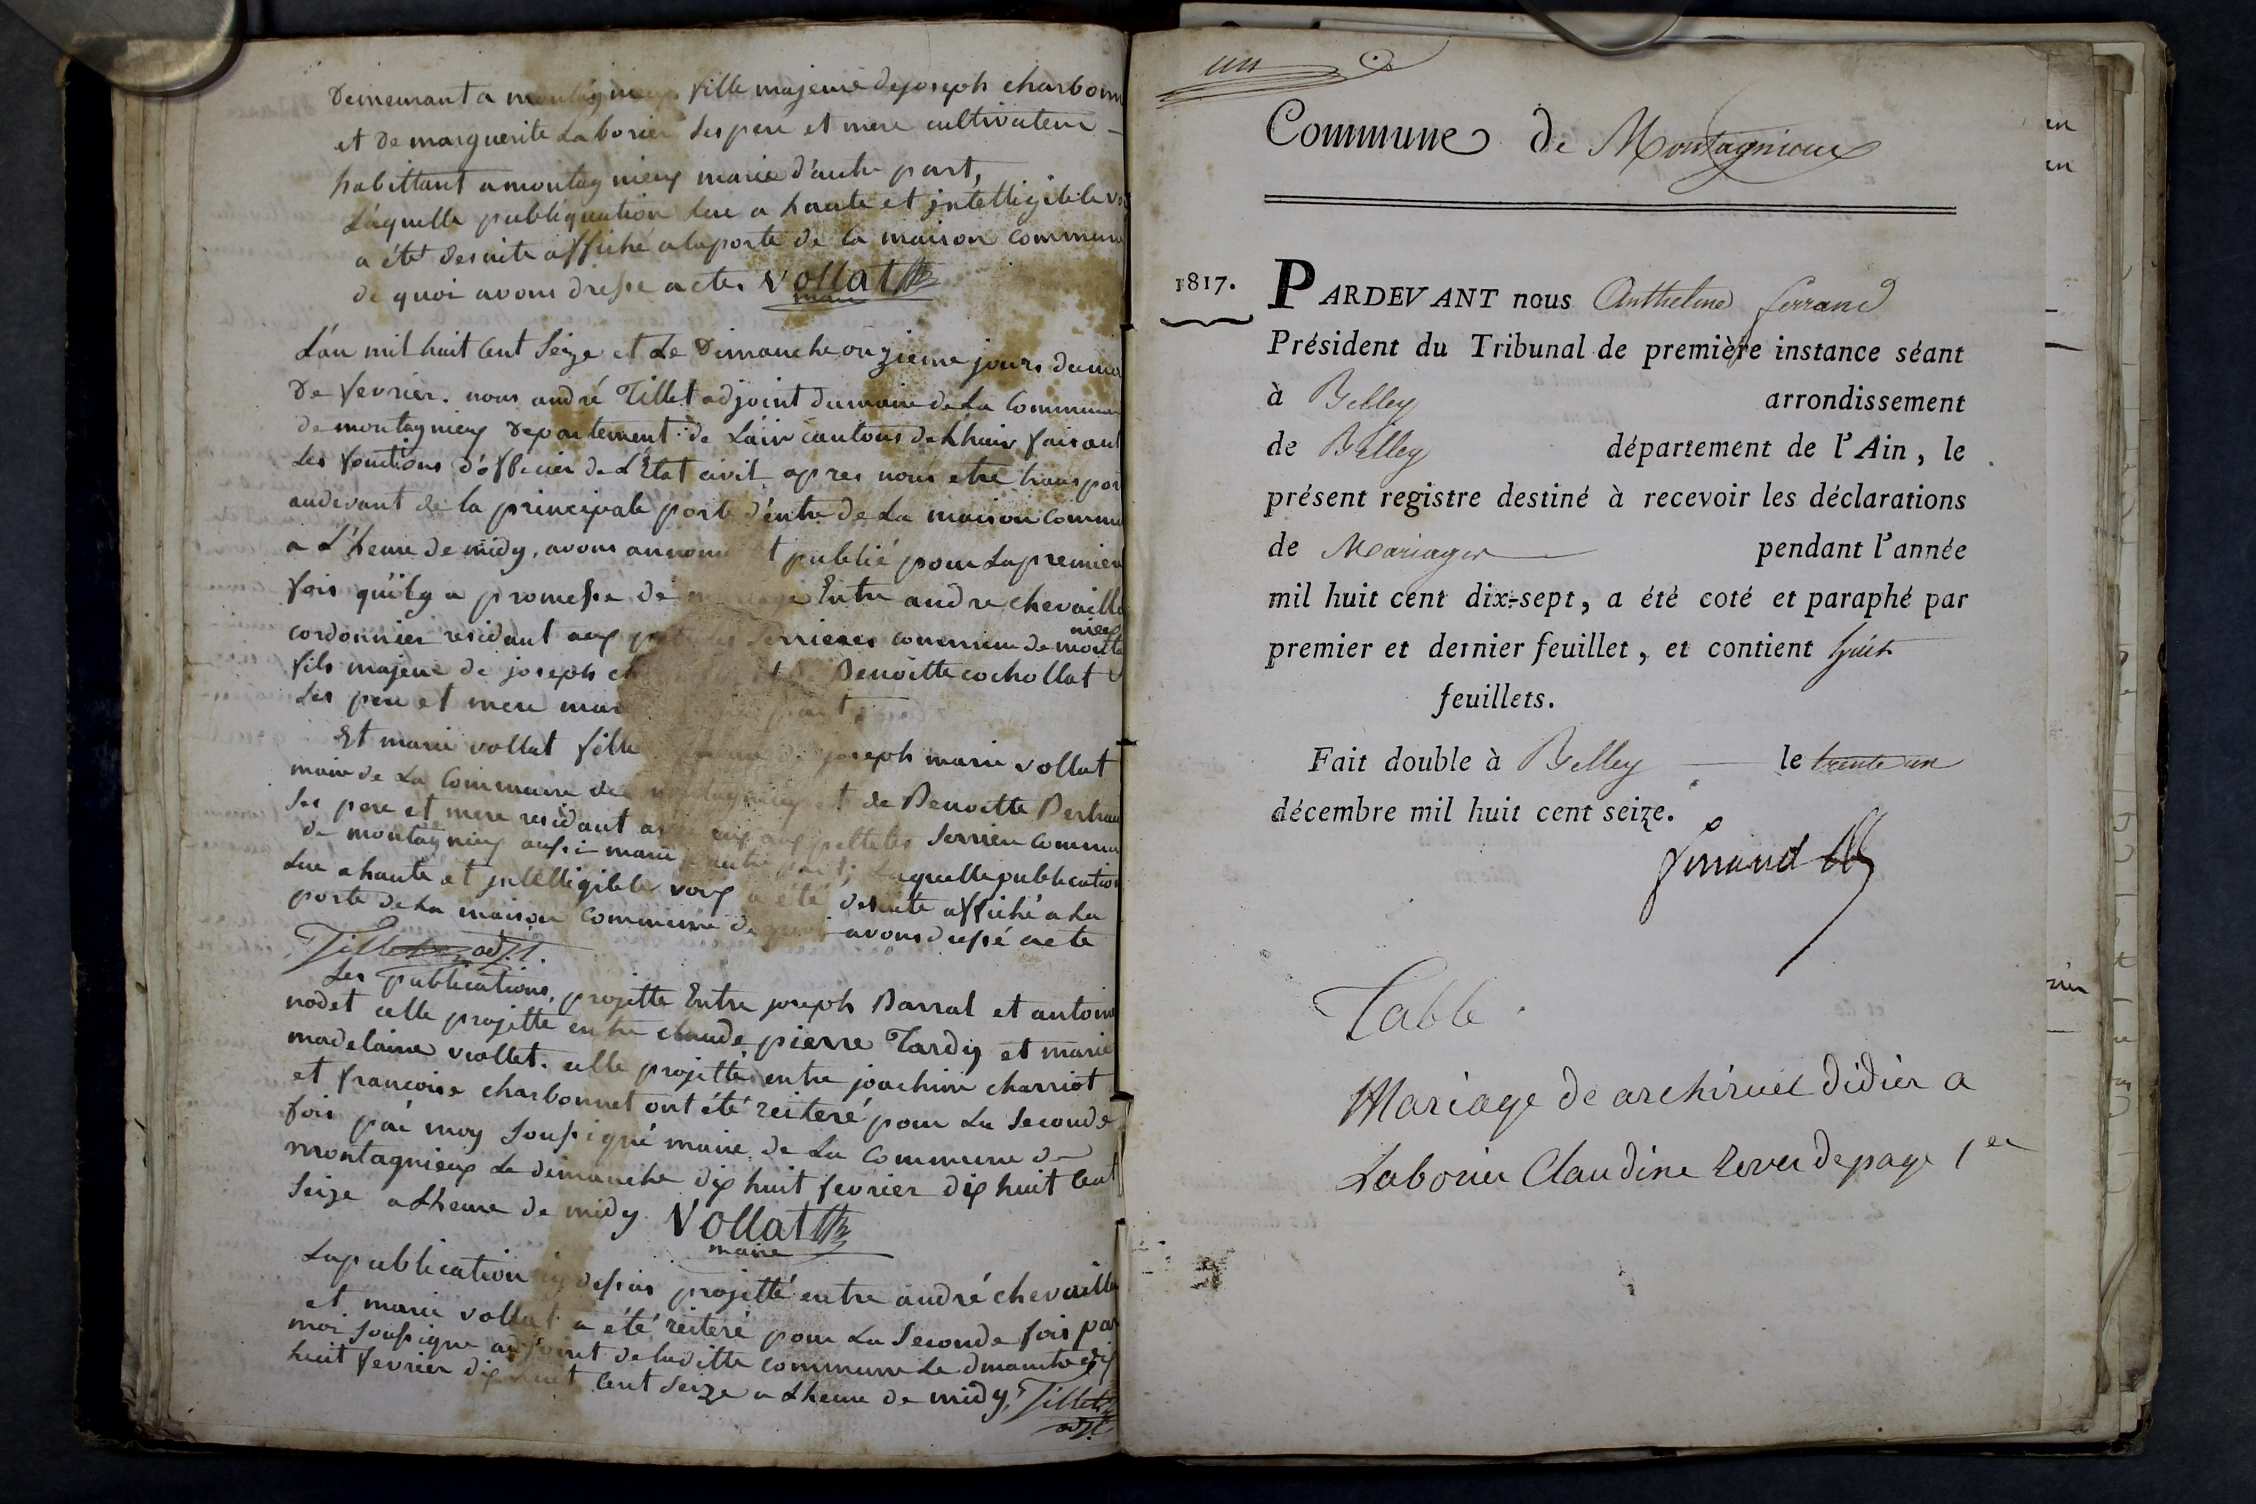 demeurant a montagnieux fille majeure de joseph charbonn
et de marguerite Laborier ses pere et mere cultivateur
habittant a montagnieux marié d'autre part,
Laquelle publiquation lue a haute et jntelligible
a été desuite affiché a la porte de la maison commun
de quoi avons dressé acte. Vollat
maire
L'an mil huit Cent Seize et Le Dimanche onzieme jours du moi
De fevrier. nous andré Tillet adjoint du maire de La Commune
de montagnieux Departement de L'ain cantons de Lhuis faisant
Les fonctions d'officier de L'Etat civil apres nous etre transpor
audevant de la principale porte d'entre de La maison commu
a L'heure de midy, avons annoncé et publié pour La premiere
fois qu'il y a promesse de mariage Entre andre chevaille
cordonnier residant aux serrieres commune de montagnieux
fils majeur de joseph ch Benoitte cochollat
Les pere et mere mar part,
Et marie vollat fille de joseph marie vollat
maire de La Commune de montagnieux et de Benoitte Bertrau
Ses pere et mere residant avec eux aux serrieres Commun
de montagnieux aussi marié d'autre part; Laquelle publication
Lue a haute et jntelligible voix a été desuite affiché a La
porte de La maison commune de quoi avons dressé acte
Tillet adjt.
Les publications, projetté Entre joseph Barral et antoine
nodet celle projetté entre claude pierre Tardy et marie
madelaine viollet. celle projetté entre joachim charriot
et francoise charbonnet ont été reiteré pour La Seconde
fois par moy Soussigné maire de La Commune de
montagnieux Le dimanche dix huit fevrier dix huit Cent
Seize a Lheure de midy Vollat
maire
La publication cy dessus projetté entre andré chevaille
et marie vollat a été reiteré pour La Seconde fois par
moi Soussigné adjoint de laditte commune Le dimanche dix
huit fevrier dix huit Cent Seize a Lheure de midy, Tillet
adjt
un
Commune de Montagnieux
1817.
PARDEVANT nous Anthelme ferrand
Président du Tribunal de première instance séant
à Belley arrondissement
de Belley département de l'Ain, le
présent registre destiné à recevoir les déclarations
de Mariages pendant l'année
mil huit cent dix-sept, a été coté et paraphé par
premier et dernier feuillet, et contient huit
feuillets.
Fait double à Belley le trente un
décembre mil huit cent seize.
ferrand
Table.
Mariage de archiruel didier a
Laborier Claudine Revers de page 1er